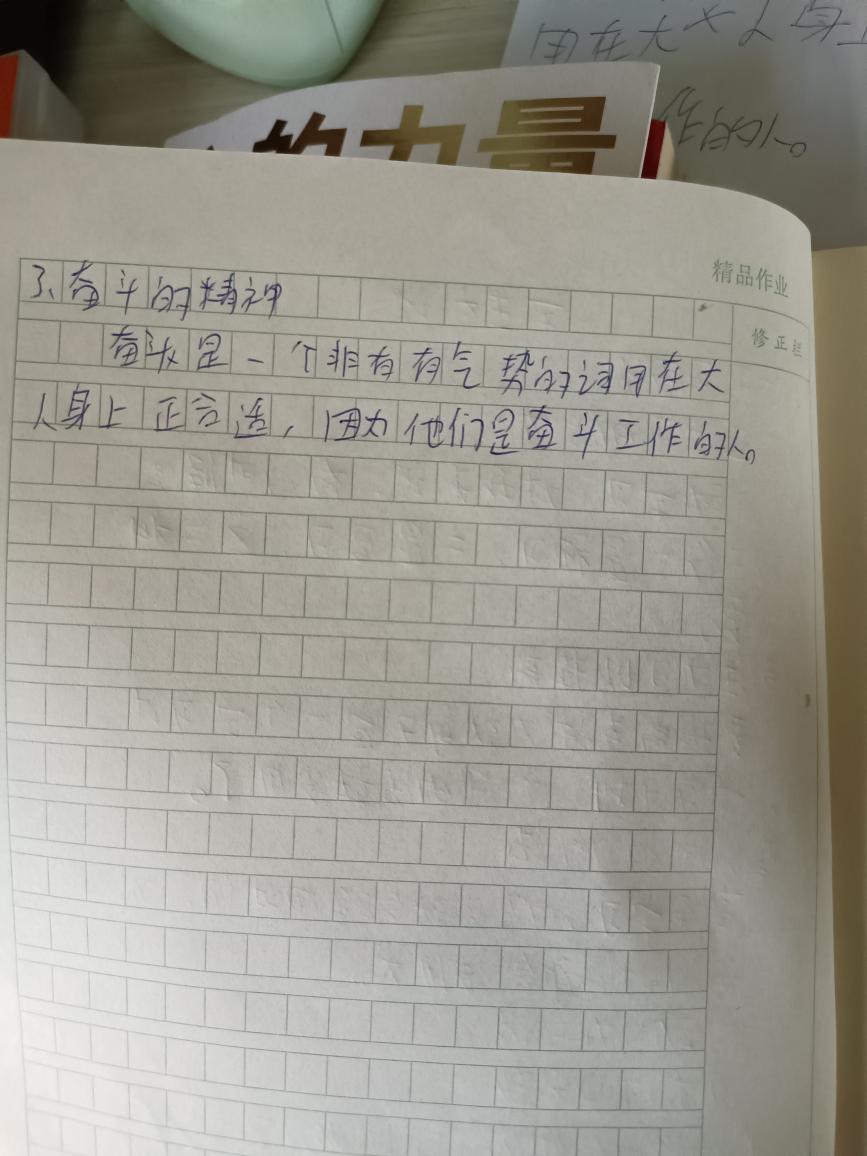 用在大人身上
作的人。
的力量
精品作业
修正栏
3、奋斗的精神
奋斗是一个非有有气势的词用在大
人身上正合适，因为他们是奋斗工作的人。